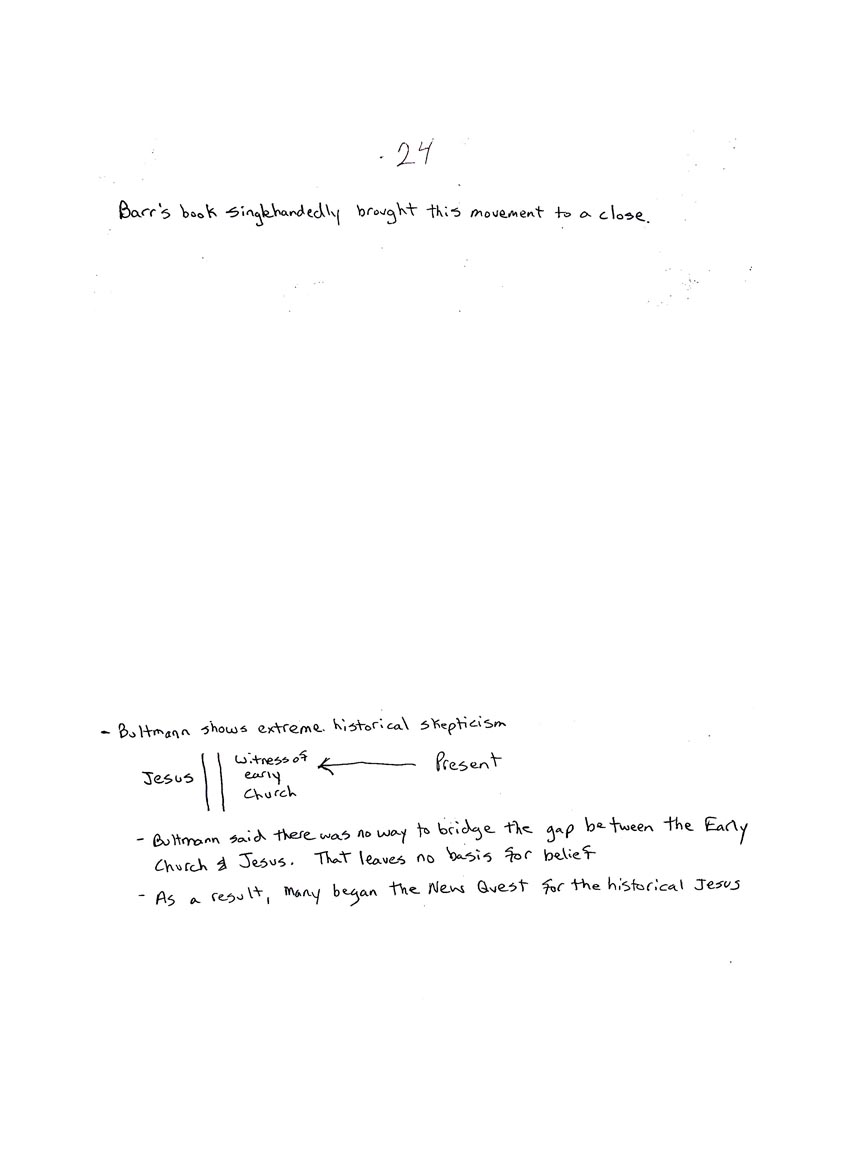 24
Barr's book singlehandedly brought this movement to a close.
- Bultmann shows extreme historical skepticism
Jesus
Witness of
early
Church
Present
- Bultmann said there was no way to bridge the gap between the Early
Church & Jesus. That leaves no basis for belief
- As a result, many began the New Quest for the historical Jesus